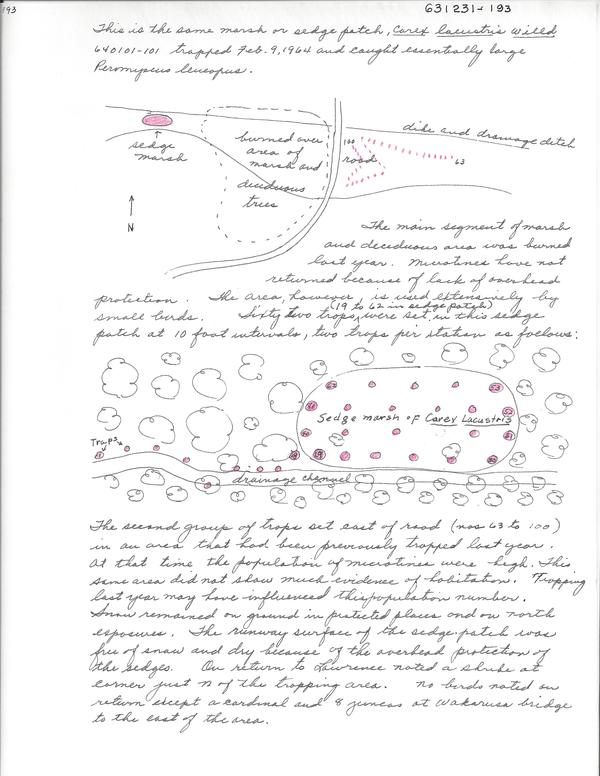 193
631231-193
This is the same marsh or sedge patch, Carex lacustris Willd
640101-101 trapped Feb. 9, 1964 and caught essentially large
Peromyscus leucopus.
dike and drainage ditch
sedge
marsh
burned over
area of
marsh and
deciduous
trees
100
road
63
N
The main segment of marsh
and deciduous area was burned
last year. Microtines have not
returned because of lack of overhead
protection. The area, however, is used extensively by
(19 to 62 in sedge patch)
small birds. Sixty two traps, were set in this sedge
patch at 10 foot intervals, two traps per station as follows:
Sedge marsh of Carex Lacustris
Traps
drainage channel
The second group of traps set east of road (nos 63 to 100)
in an area that had been previously trapped last year.
At that time the population of microtines were high. This
same area did not show much evidence of habitation. Trapping
last year may have influenced this population number.
Snow remained on ground in protected places and on north
exposures. The runway surface of the sedge patch was
free of snow and dry because of the overhead protection of
the sedges. On return to Lawrence noted a shrike at
corner just N of the trapping area. No birds noted on
return except a cardinal and 8 juncos at Wakarusa bridge
to the east of the area.